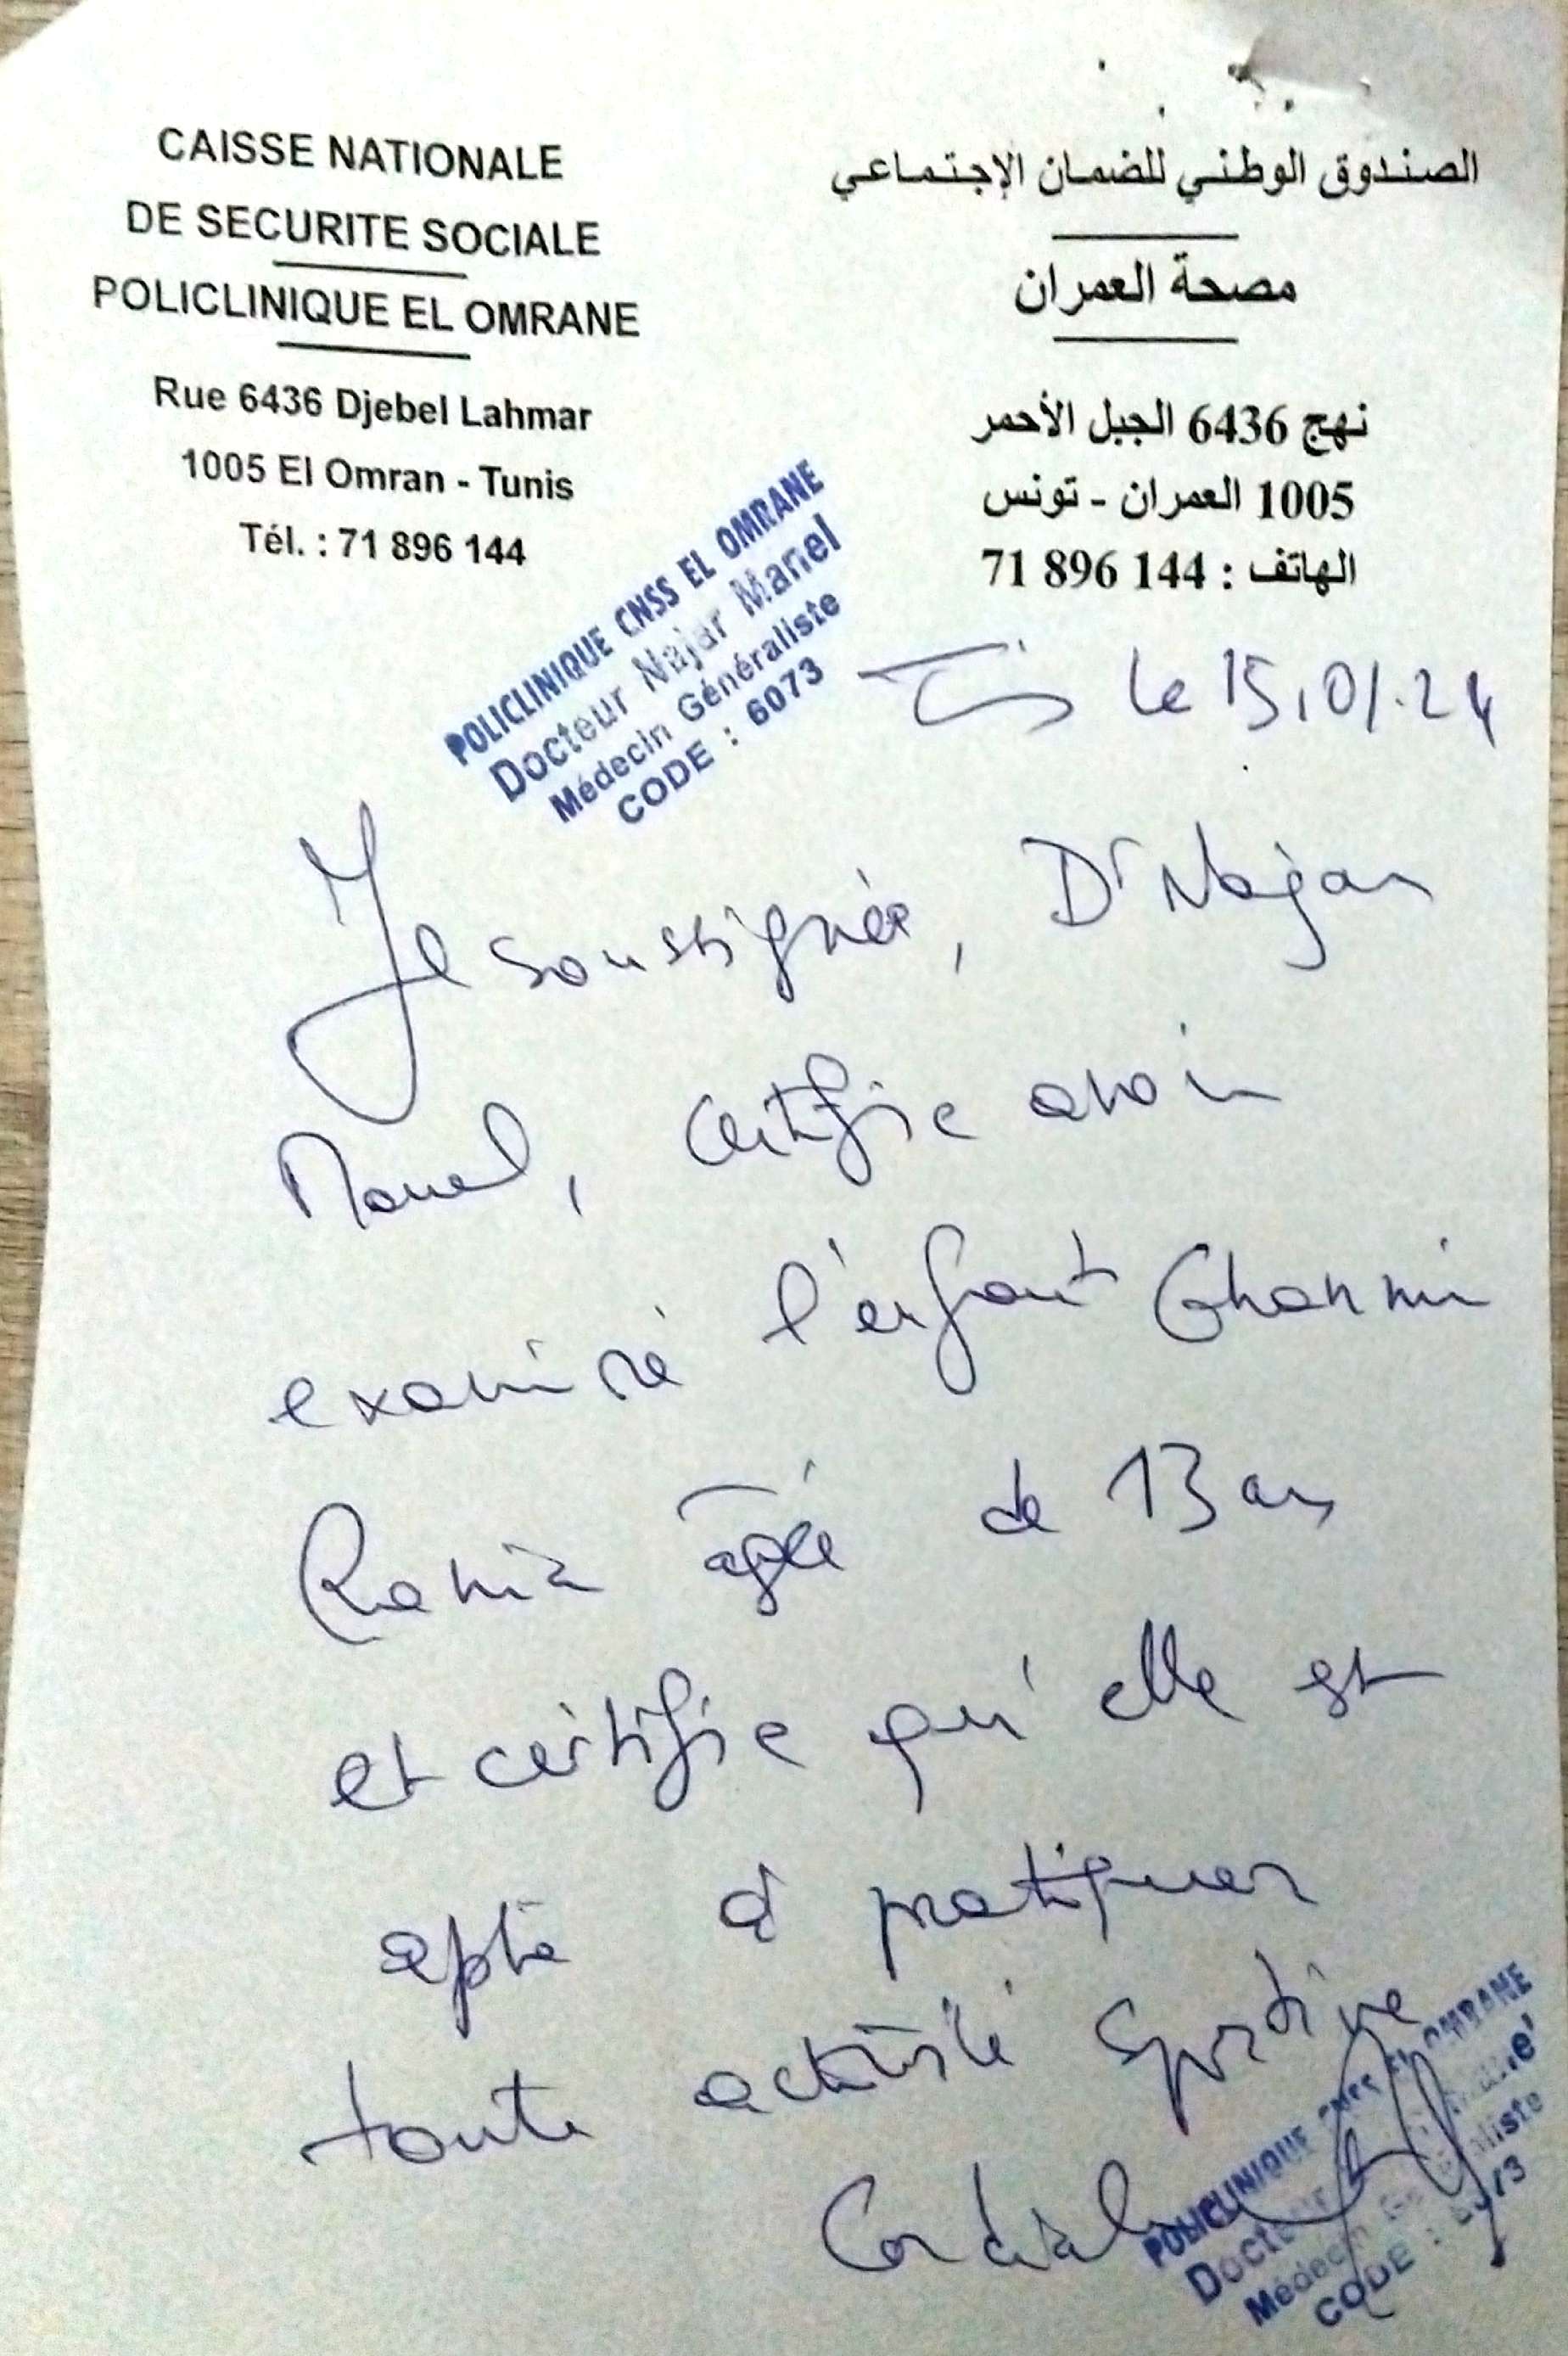 CAISSE NATIONALE
DE SECURITE SOCIALE
POLICLINIQUE EL OMRANE
Rue 6436 Djebel Lahmar
1005 El Omran - Tunis
Tél. : 71 896 144
الصندوق الوطني للضمان الإجتماعي
مصحة العمران
نهج 6436 الجبل الأحمر
1005 العمران - تونس
الهاتف : 144 896 71
POLICLINIQUE CNSS EL OMRANE
Docteur Najar Manel
Médecin Généraliste
CODE : 6073
Tunis le 15.01.24
Je soussignée, Dr Najar
Manel, certifie avoir
examiné l'enfant Ghanmi
Rania âgée de 13 ans
et certifie qu'elle est
apte à pratiquer
toute activité sportive
Cordialement
POLICLINIQUE CNSS EL OMRANE
Docteur
Médecin Généraliste
CODE : 6073